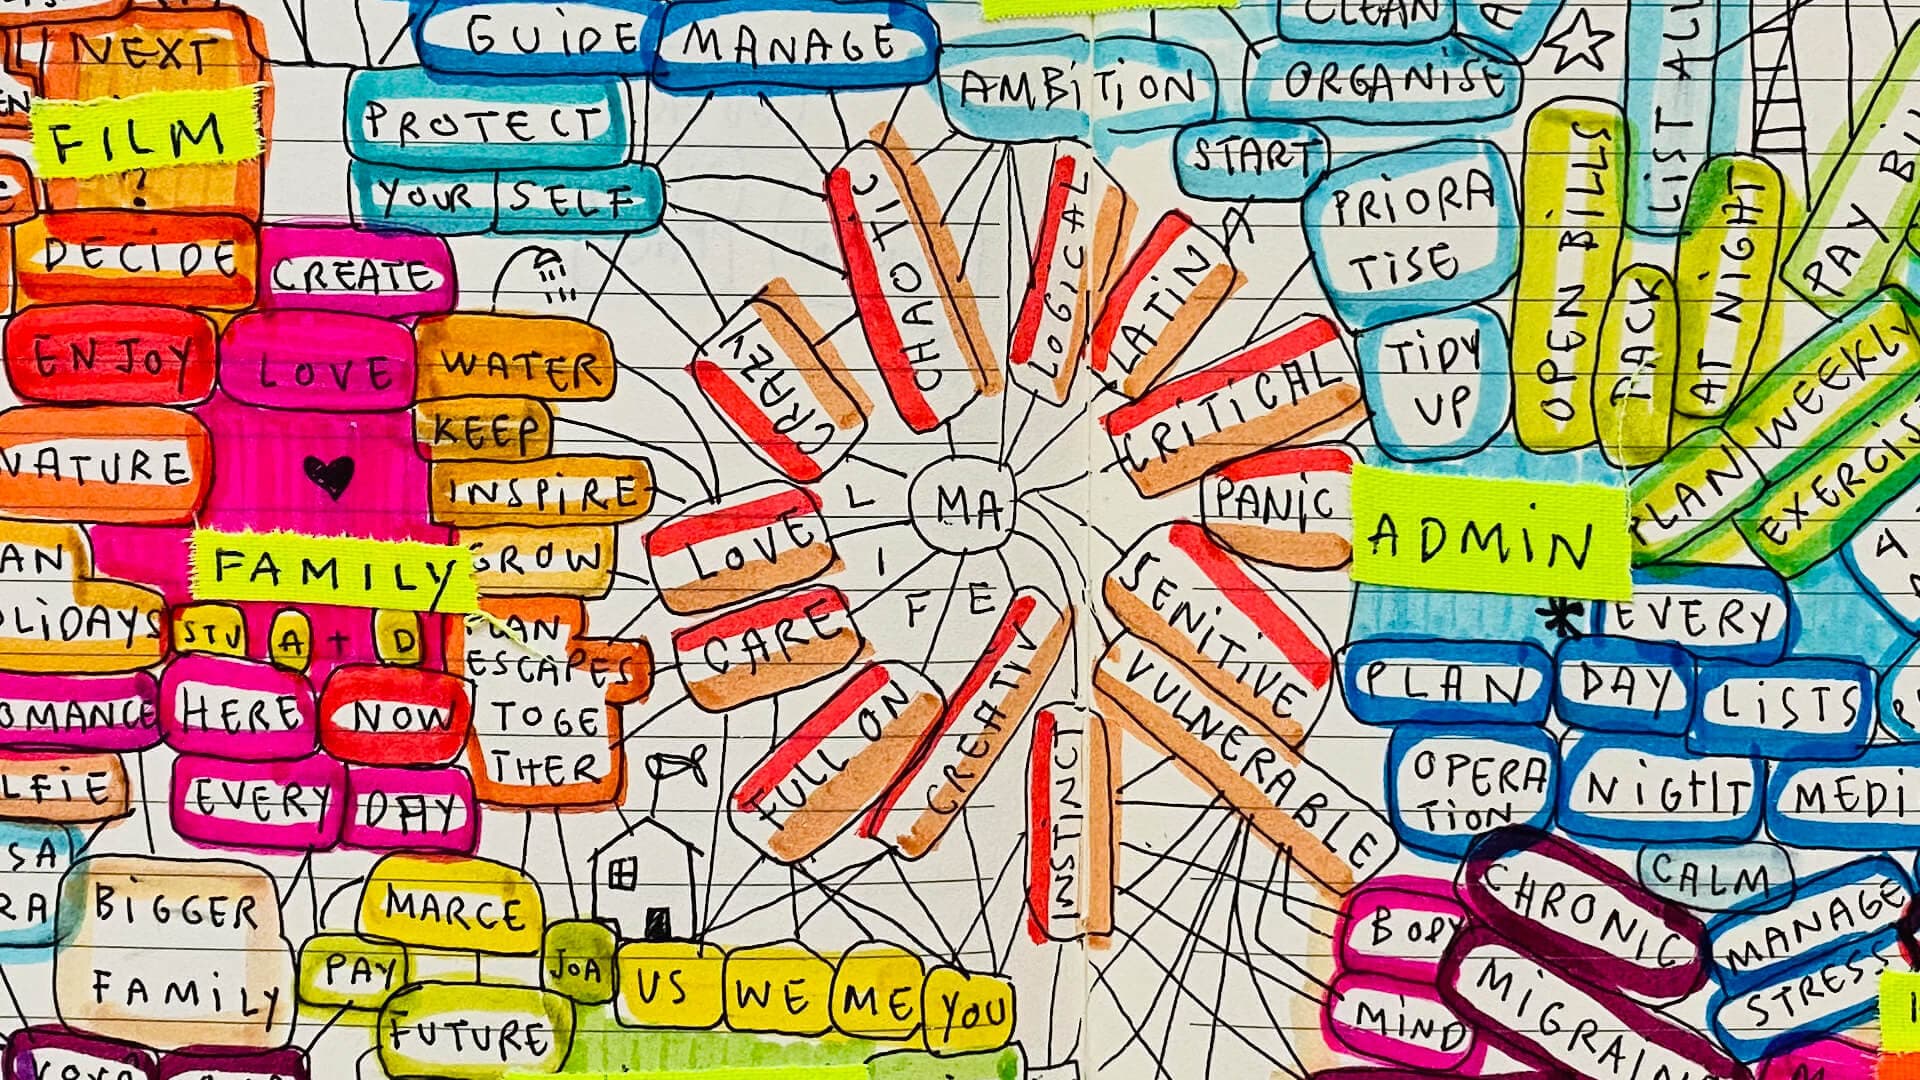 NEXT
FILM
?
DECIDE
CREATE
ENJOY
LOVE
NATURE
FAMILY
STU A + D
HERE
NOW
EVERY DAY
BIGGER
FAMILY
GUIDE
MANAGE
PROTECT
YOUR SELF
WATER
KEEP
INSPIRE
GROW
PLAN
ESCAPES
TOGE
THER
MARCE
PAY
JOA
FUTURE
US WE ME YOU
AMBITION
CLEAN
ORGANISE
START
PRIORA
TISE
TIDY
UP
MA
LIFE
CRAZY
CHAOTIC
LOGICAL
LATIN
CRITICAL
PANIC
SENITIVE
VULNERABLE
INSTINCT
CREATIV
FULL ON
CARE
LOVE
OPEN BILLS
PACK
LIST
AT NIGHT
PAY
PLAN WEEKLY
ADMIN
* EVERY
PLAN DAY LISTS
OPERA
TION
NIGHT
MEDI
CALM
CHRONIC
MIGRAIN
MANAGE
STRESS
BODY
MIND